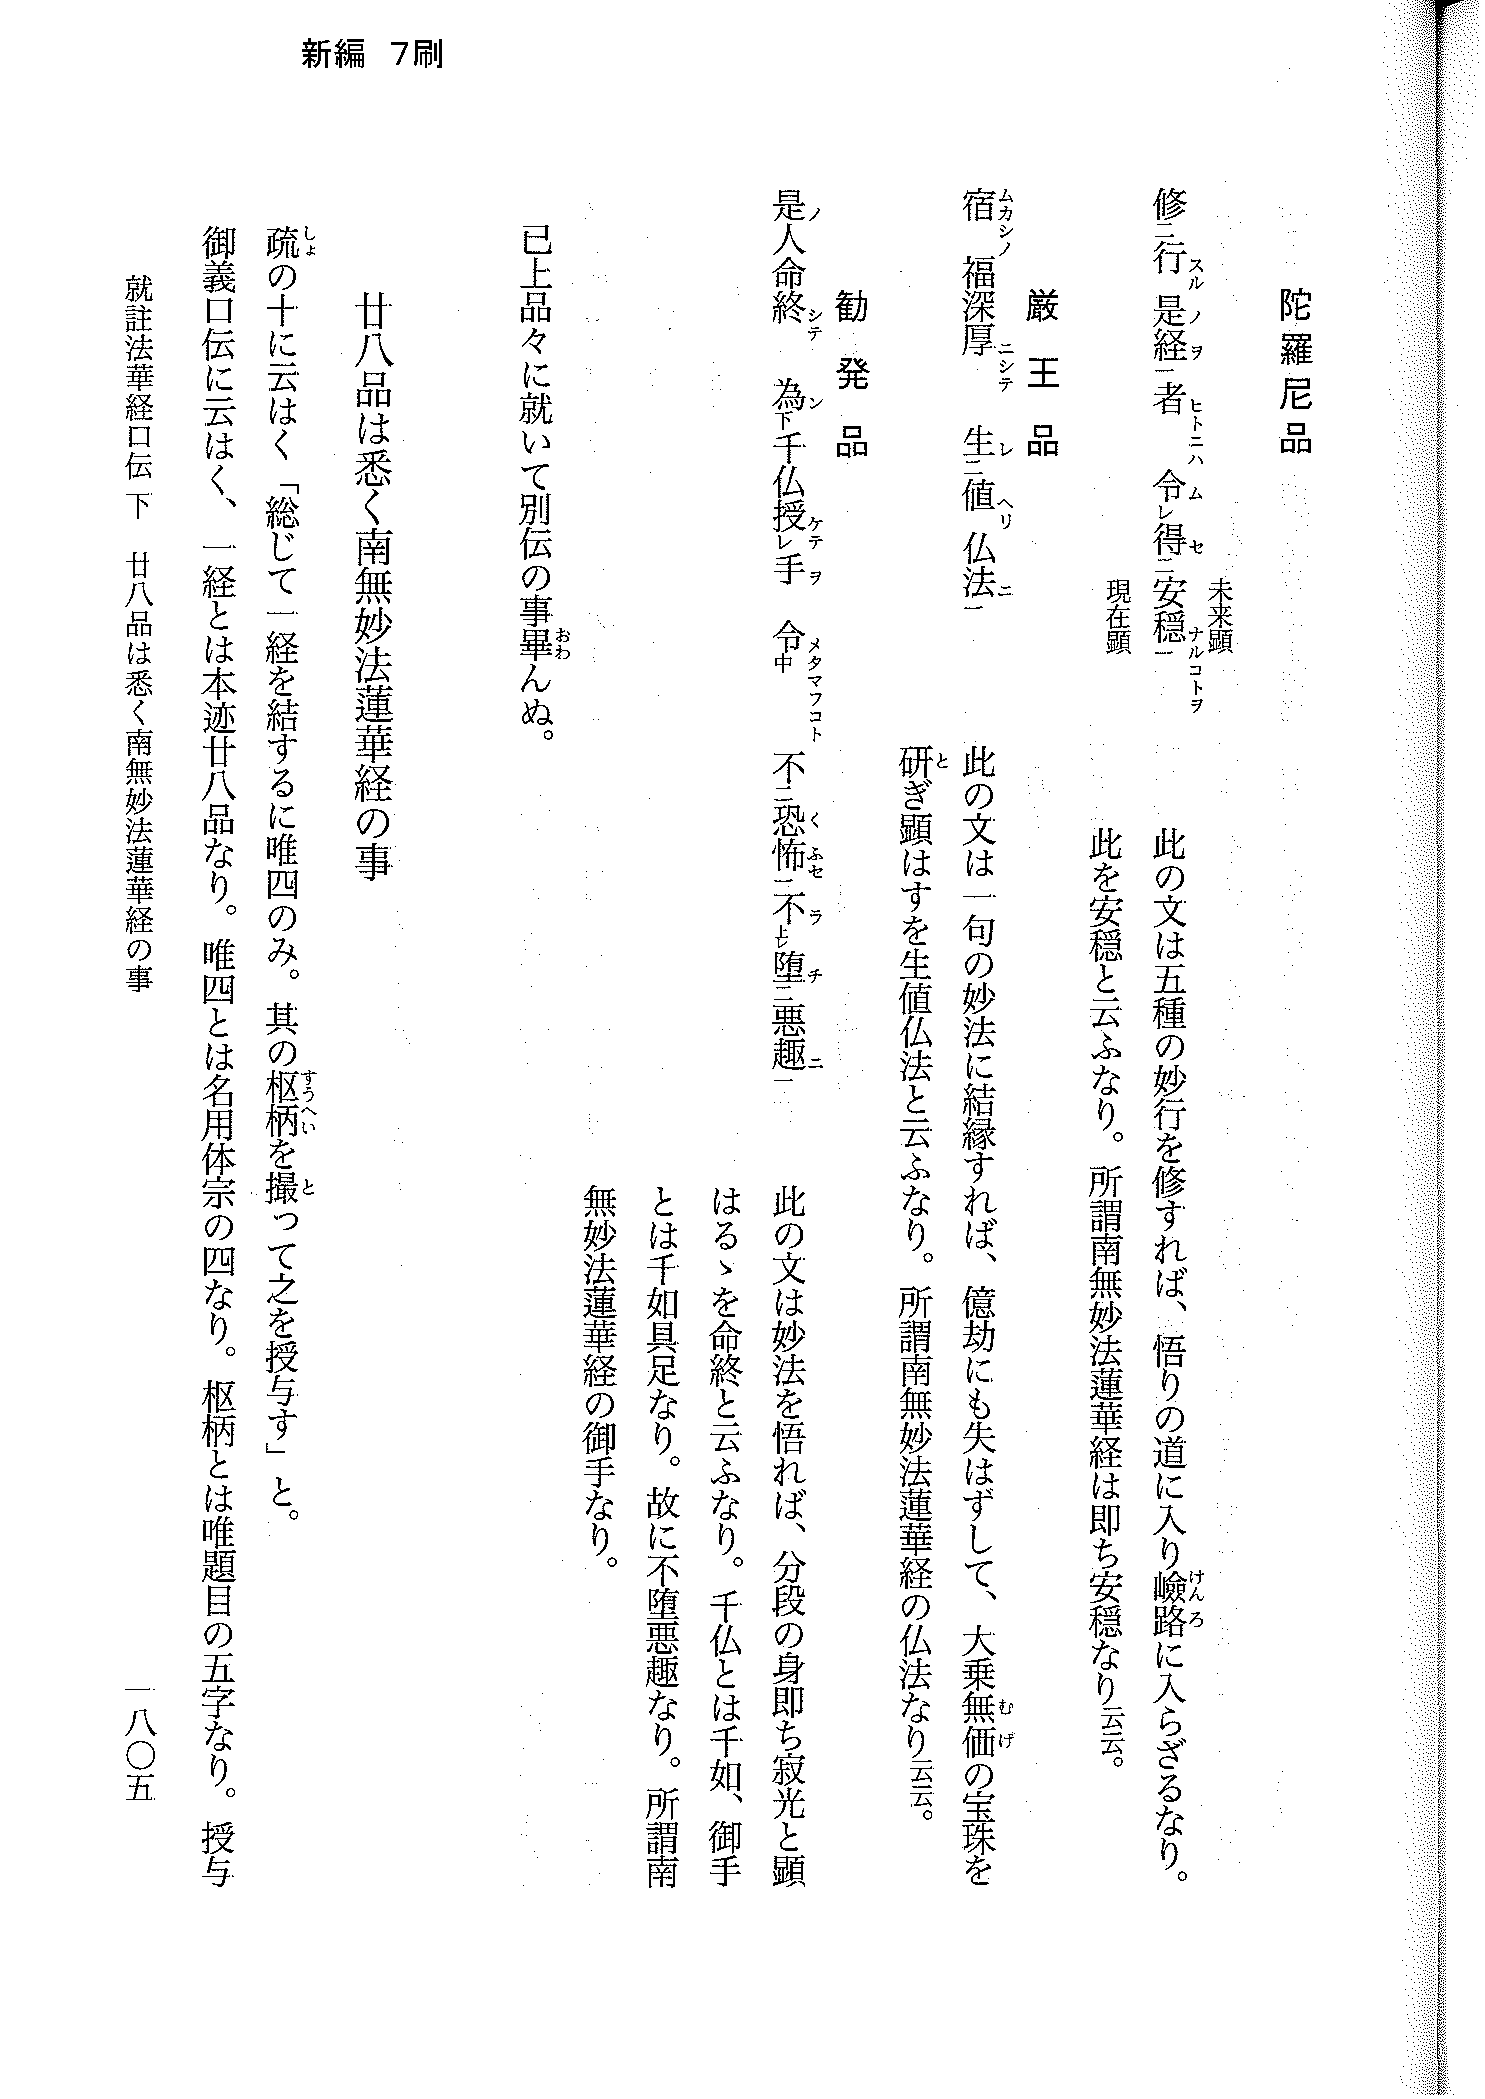 新編 7刷
陀羅尼品
未来顕
修二行スル是ノ経ヲ一者ヒトニハ 令ムレ得セ二安穏ナルコトヲ一
現在顕
此の文は五種の妙行を修すれば、悟りの道に入り嶮路けんろに入らざるなり。
此を安穏と云ふなり。所謂南無妙法蓮華経は即ち安穏なり云云。
厳王品
宿ムカシノ福深厚ニシテ 生レ二値ヘリ仏法ニ一
此の文は一句の妙法に結縁すれば、億劫にも失はずして、大乗無価むげの宝珠を
研とぎ顕はすを生値仏法と云ふなり。所謂南無妙法蓮華経の仏法なり云云。
勧発品
是ノ人命終シテ 為ン下千仏授ケテレ手ヲ 令メタマフコト中 不二く恐怖ふセ二不ラ上レ堕チ二悪趣ニ一
此の文は妙法を悟れば、分段の身即ち寂光と顕
はるゝを命終と云ふなり。千仏とは千如、御手
とは千如具足なり。故に不堕悪趣なり。所謂南
無妙法蓮華経の御手なり。
已上品々に就いて別伝の事畢おわんぬ。
廿八品は悉く南無妙法蓮華経の事
疏しょの十に云はく「総じて一経を結するに唯四のみ。其の枢柄すうへいを撮とって之を授与す」と。
御義口伝に云はく、一経とは本迹廿八品なり。唯四とは名用体宗の四なり。枢柄とは唯題目の五字なり。授与
就註法華経口伝 下 廿八品は悉く南無妙法蓮華経の事
一八〇五